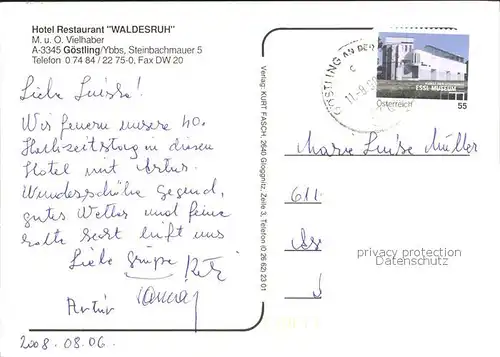 Hotel Restaurant "WALDESRUH"
M. u. O. Vielhaber
A-3345 Göstling/Ybbs, Steinbachmauer 5
Telefon 0 74 84 / 22 75-0, Fax DW 20
Liebe Luise!
Wir feuern unsere 40.
Hochzeitstag in diesen
Hotel mit Artur.
Wunderschöhe Gegend,
gutes Wetter und feine
luft uns
Liebe Grüße
Artur
2008. 08. 06.
Verlag: KURT FASCH, 2640 Gloggnitz, Zeile 3, Telefon (0 26 62) 23 01
GÖSTLING AN DER
ESSL MUSEUM
Österreich 55
Marie Luise Müller
611
privacy protection
Datenschutz